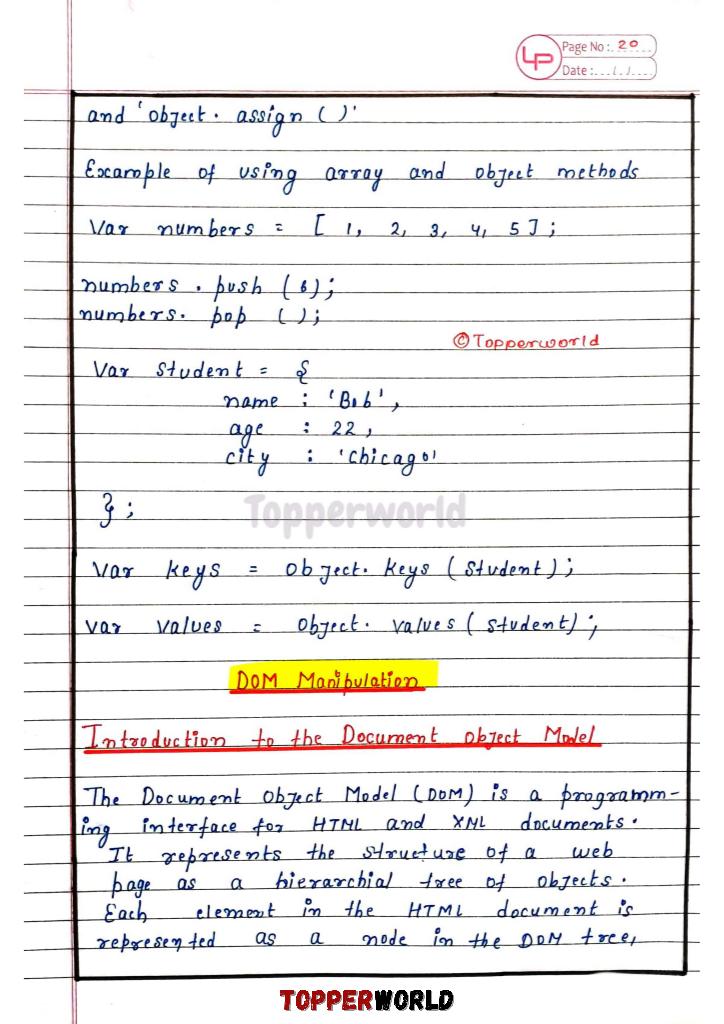 LP
Page No : 20
Date : ... / ... / ...
and 'object. assign ( )'
Example of using array and object methods
Var numbers = [ 1, 2, 3, 4, 5 ] ;
numbers . push ( 6 );
numbers. pop ( );
©Topperworld
Var student = {
name : 'Bob',
age : 22 ,
city : 'chicago'
} ;
Topperworld
Var keys = object. keys ( student ) ;
var values = object. values ( student) ;
DOM Manipulation
Introduction to the Document object Model
The Document Object Model (DOM) is a programm-
ing interface for HTML and XML documents.
It represents the structure of a web
page as a hierarchial tree of objects.
Each element in the HTML document is
represented as a node in the DOM tree,
TOPPERWORLD